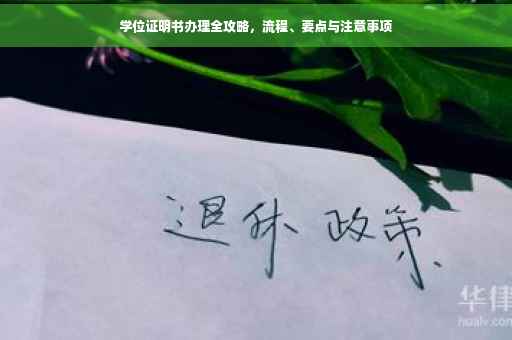 学位证明书办理全攻略，流程、要点与注意事项
退休 政策
华律
hualv.com